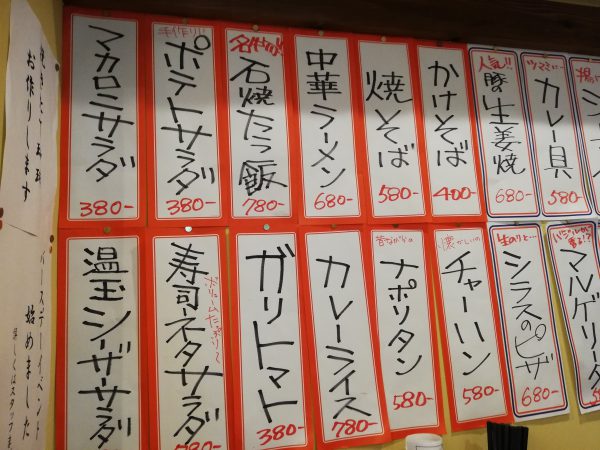 マカロニサラダ
380-
手作り!!
ポテトサラダ
380-
名物!!
石焼たっ飯
780-
中華ラーメン
680-
焼そば
580-
かけそば
400-
人気!!
豚の生姜焼
680-
ツマミに…
カレー具
580-
温玉シーザーサラダ
寿司ネタサラダ
ボリュームたっぷり〜
ガリトマト
380-
カレーライス
780-
昔ながらの
ナポリタン
580-
懐かしいの
チャーハン
580-
生のりと…
シラスのピザ
680-
マルゲリータ
お作りします
バースデーイベント
始めました